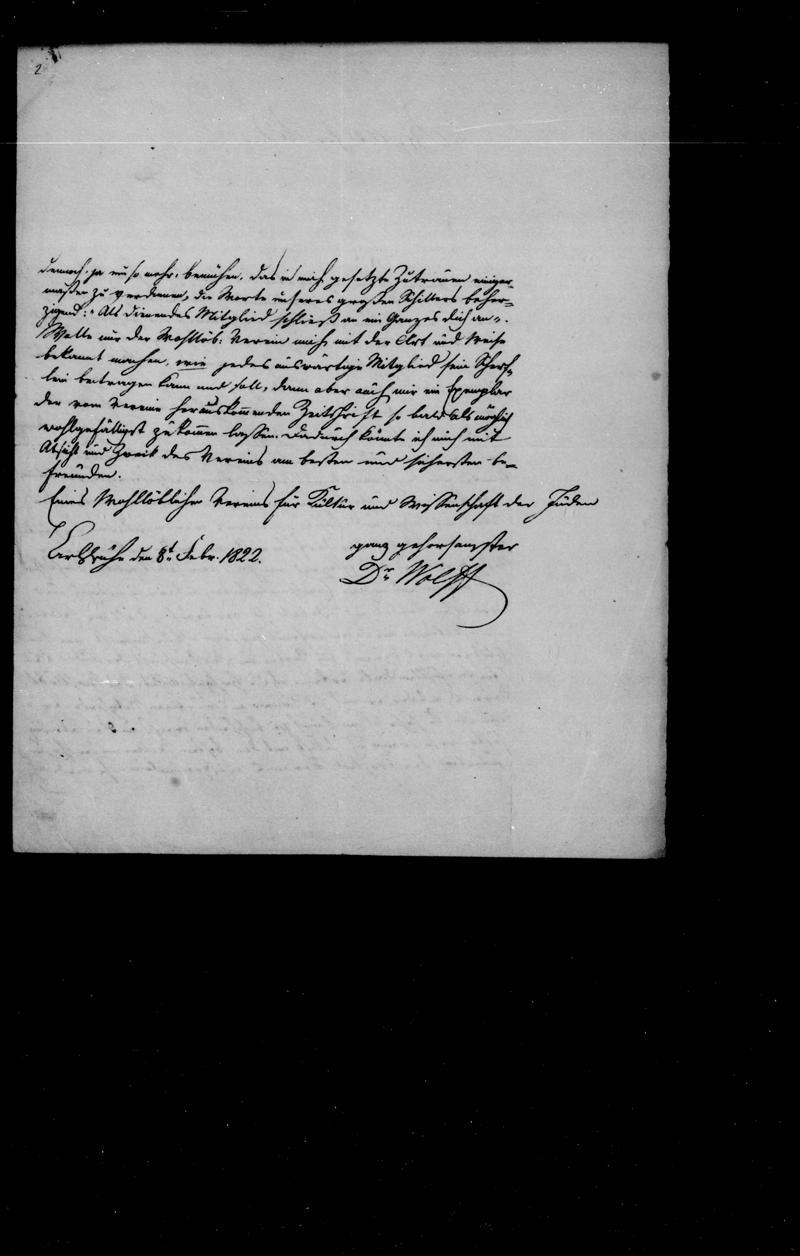 2
dennoch ja um so mehr, bemühen, das in mich gesetzte Zutrauen einiger-
maßen zu verdienen, die Worte unseres großen Schillers beher-
zigend: „Als dienendes Mitglied schließ an ein Ganzes dich an“.
Wolle nur der Wohllöb: Verein mich mit der Art und Weise
bekannt machen, wie jedes auswärtige Mitglied sein Scherf-
lein beitragen kann und soll, dann aber auch mir ein Exemplar
der vom Verein herauskommenden Zeitschrift so bald als möglich
wohlgefälligst zukommen lassen. Dadurch könnte ich mich mit
Absicht und Zweck des Vereins am besten und sichersten be-
freunden.
Eines Wohllöblichen Vereins für Kultur und Wissenschaft der Juden
ganz gehorsamster
Carlsruhe den 8t. Febr. 1822.
Dr. Wolff